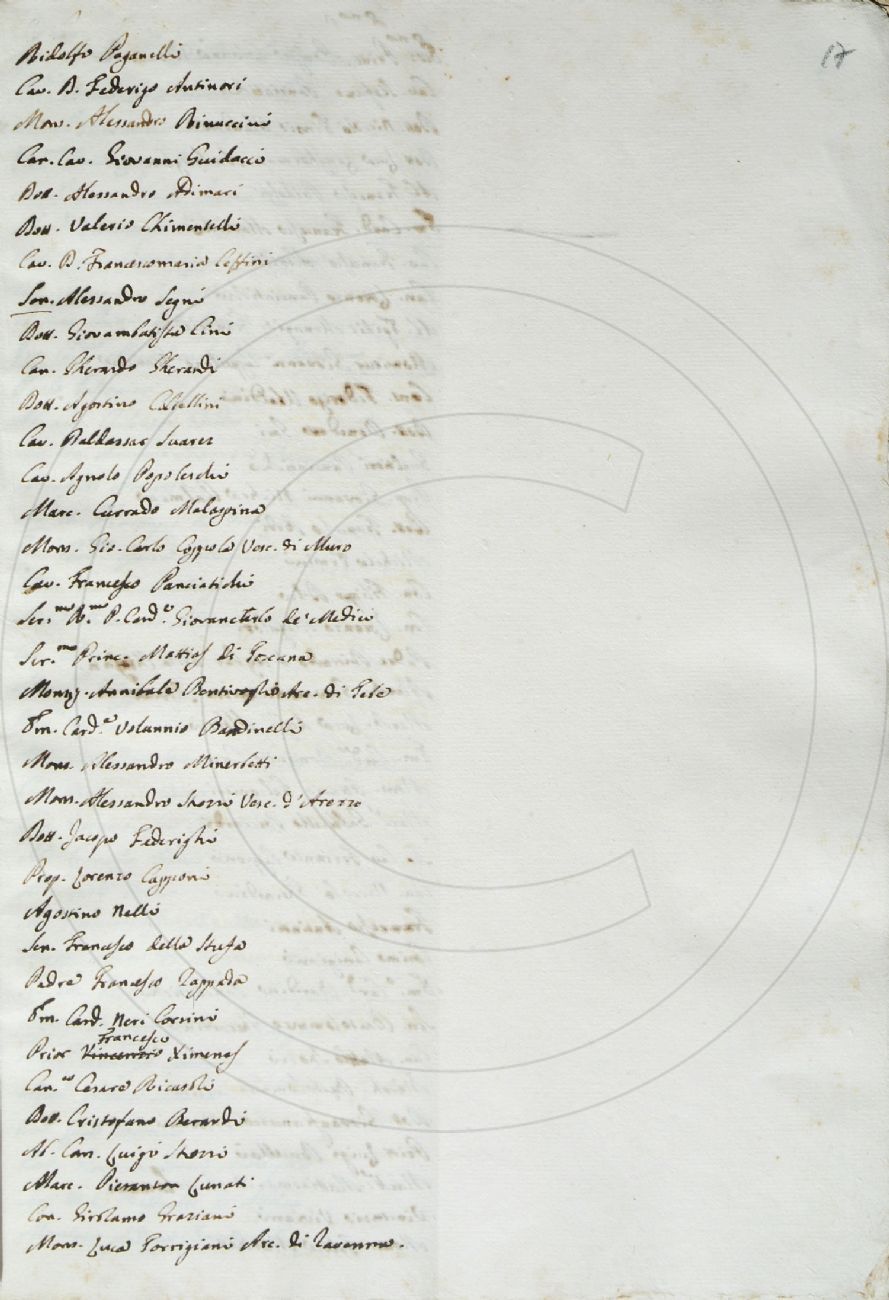 17
Ridolfo Paganelli
Cav. B. Federigo Antinori
Mons. Alessandro Rinuccini
Can. Cav. Giovanni Guidacci
Dott. Alessandro Adimari
Dott. Valerio Chimentelli
Cav. B. Francescomaria Ceffini
Sen. Alessandro Segni
Dott. Giovambatista Cini
Cav. Gherardo Gherardi
Dott. Agostino Coltellini
Cav. Baldassar Suarez
Cav. Agnolo Popoleschi
Marc. Currado Malaspina
Mons. Gio. Carlo Coppola Vesc. di Muro
Cav. Francesco Panciatichi
Ser.mo R.mo P. Card.e Giovancarlo de' Medici
Ser.mo Princ. Mattias di Toscana
Monsig. Annibale Bentivoglio Arc. di Tebe
Em. Card.e Volunnio Bandinelli
Mons. Alessandro Minerbetti
Mons. Alessandro Strozzi Vesc. d'Arezzo
Dott. Jacopo Federighi
Prop. Lorenzo Capponi
Agostino Nelli
Sen. Francesco della Stufa
Padre Francesco Rappada
Em. Card. Neri Corsini
Francesco
Prior Vincenzio Ximenes
Can.co Cesare Ricasoli
Dott. Cristofano Berardi
Ab. Can. Luigi Strozzi
Marc. Pieranton Lunati
Con. Girolamo Graziani
Mons. Luca Torrigiani Arc. di Ravenna.